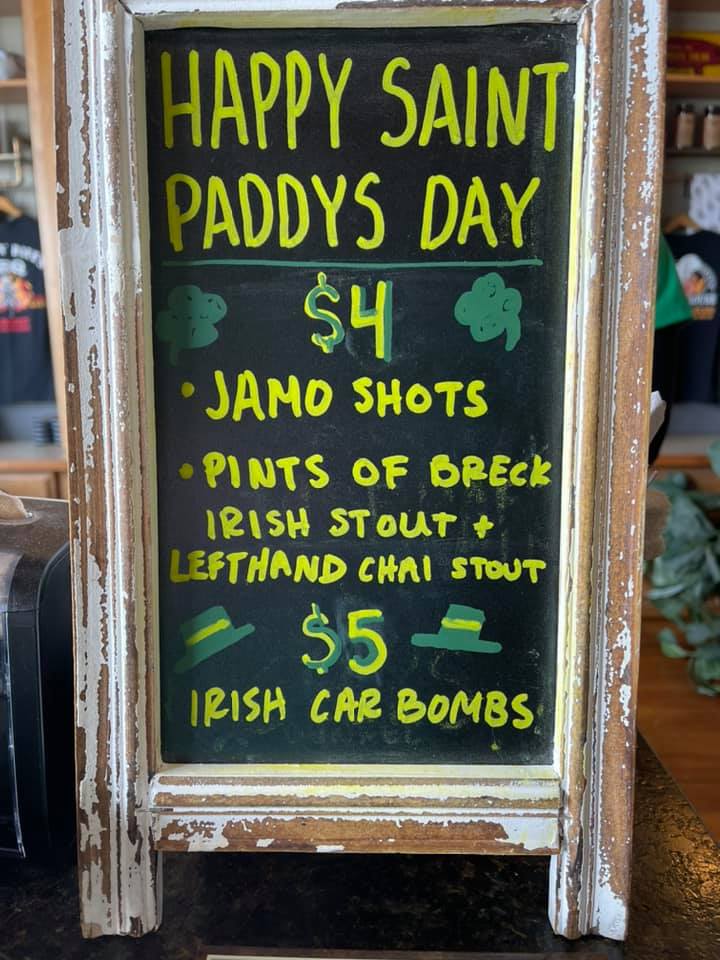 HAPPY SAINT
PADDYS DAY
$4
• JAMO SHOTS
• PINTS OF BRECK
IRISH STOUT +
LEFTHAND CHAI STOUT
$5
IRISH CAR BOMBS